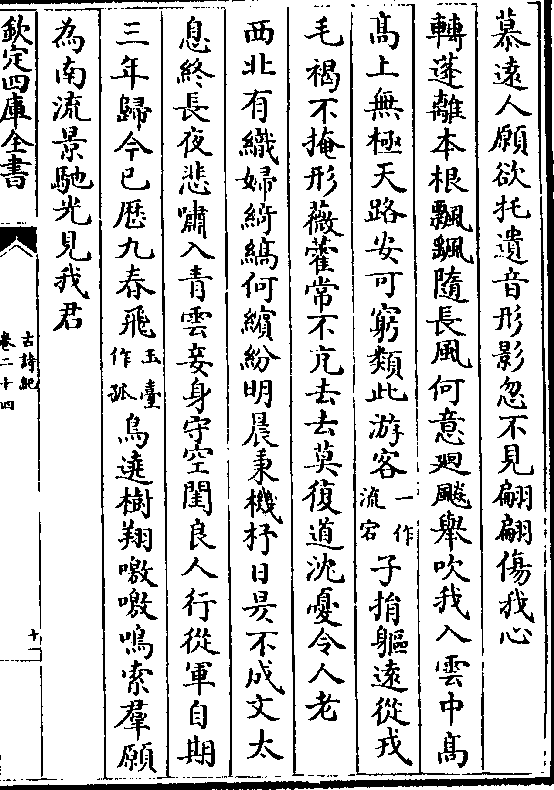 慕遠人願欲托遺音形影忽不見翩翩傷我心
轉蓬離本根飄颻隨長風何意廻飇舉吹我入雲中髙
髙上無極天路安可窮類此游客一作流宕子捐軀逺從戎
毛褐不掩形薇藿常不充去去莫復道沈憂令人老
西北有織婦綺縞何繽紛明晨秉機杼日昃不成文太
息終長夜悲嘯入青雲妾身守空閨良人行從軍自期
三年歸今已歴九春飛玉臺作孤鳥遶樹翔噭噭鳴索羣願
為南流景馳光見我君
欽定四庫全書
古詩紀
卷二十四
十一